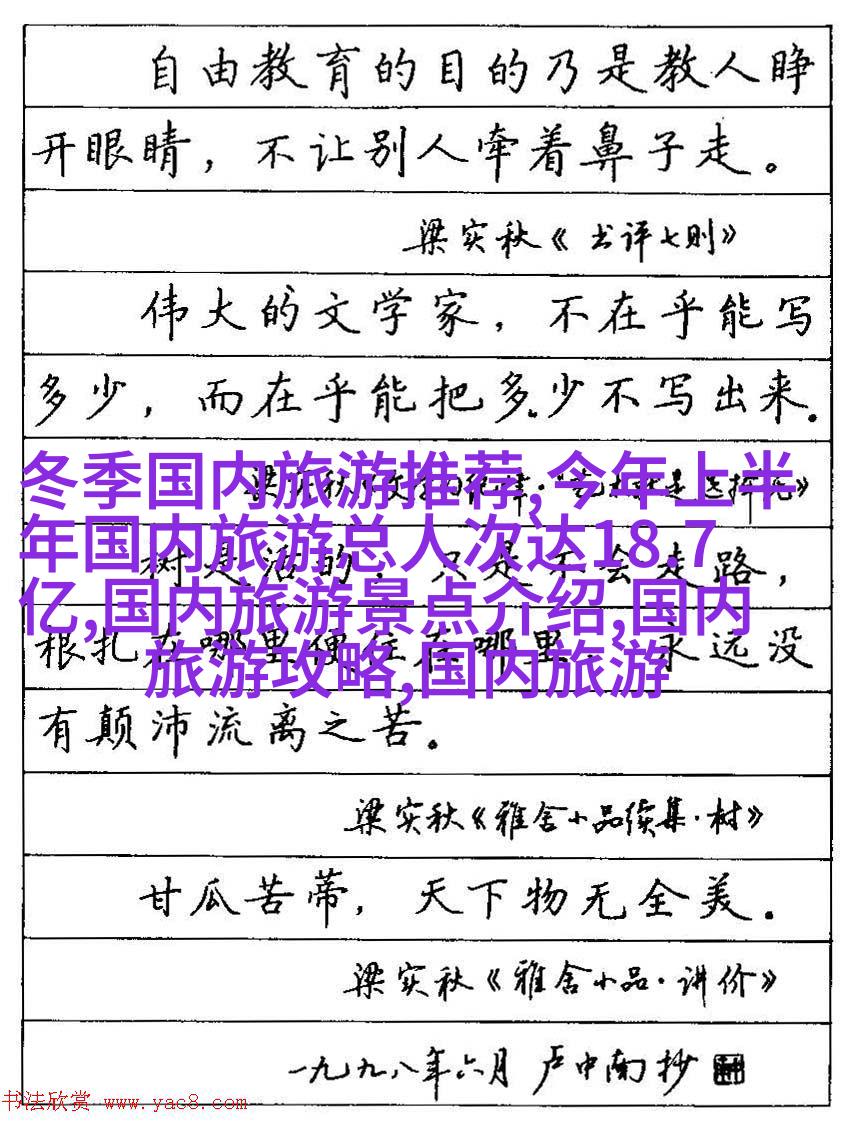 自由教育的目的乃是教人睁
开眼睛，不让别人牵着鼻子走。
梁实秋《书评七则》
伟大的文学家，不在乎能写
多少，而在乎能把多少不写出来．
冬季国内旅游推荐,今年上半
年国内旅游总人次达18.7
亿,国内旅游景点介绍,国内
旅游攻略,国内旅游
树是活的，只是不会走路，
根扎在哪里便住在哪里，永远没
有颠沛流离之苦。
梁实秋《雅舍小品续集·树》
甘瓜苦蒂，天下物无全美．
梁实秋《雅舍小品·讲价》
一九九八年六月 卢中南抄
书法欣赏 www.yac8.com